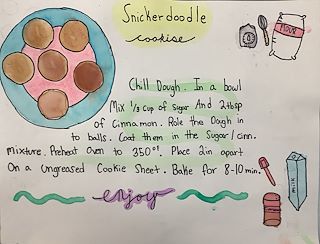 Snickerdoodle
cookise
FLOUR
Chill Dough. In a bowl
Mix 1/3 cup of Sugar And 2tbsp
of Cinnamon. Role the Dough in
to balls. Coat them in the Sugar/cinn.
Mixture. Preheat oven to 350°! Place 2in apart
On a Ungreased Cookie Sheet. Bake for 8-10 min.
MILK
enjoy